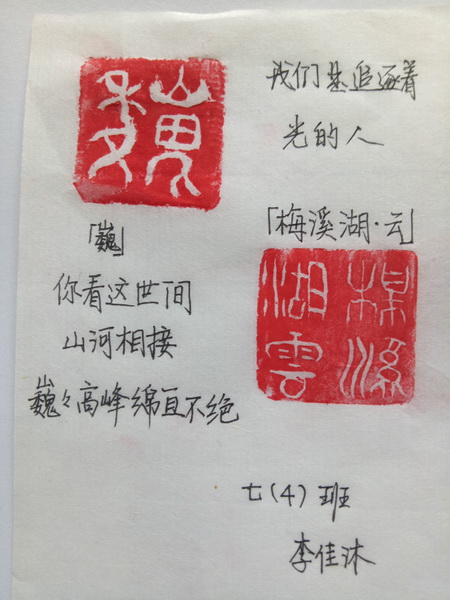 巍
「巍」
你看这世间
山河相接
巍々高峰绵亘不绝
我们是追逐着
光的人
「梅溪湖·云」
梅溪
湖雲
七(4)班
李佳沐